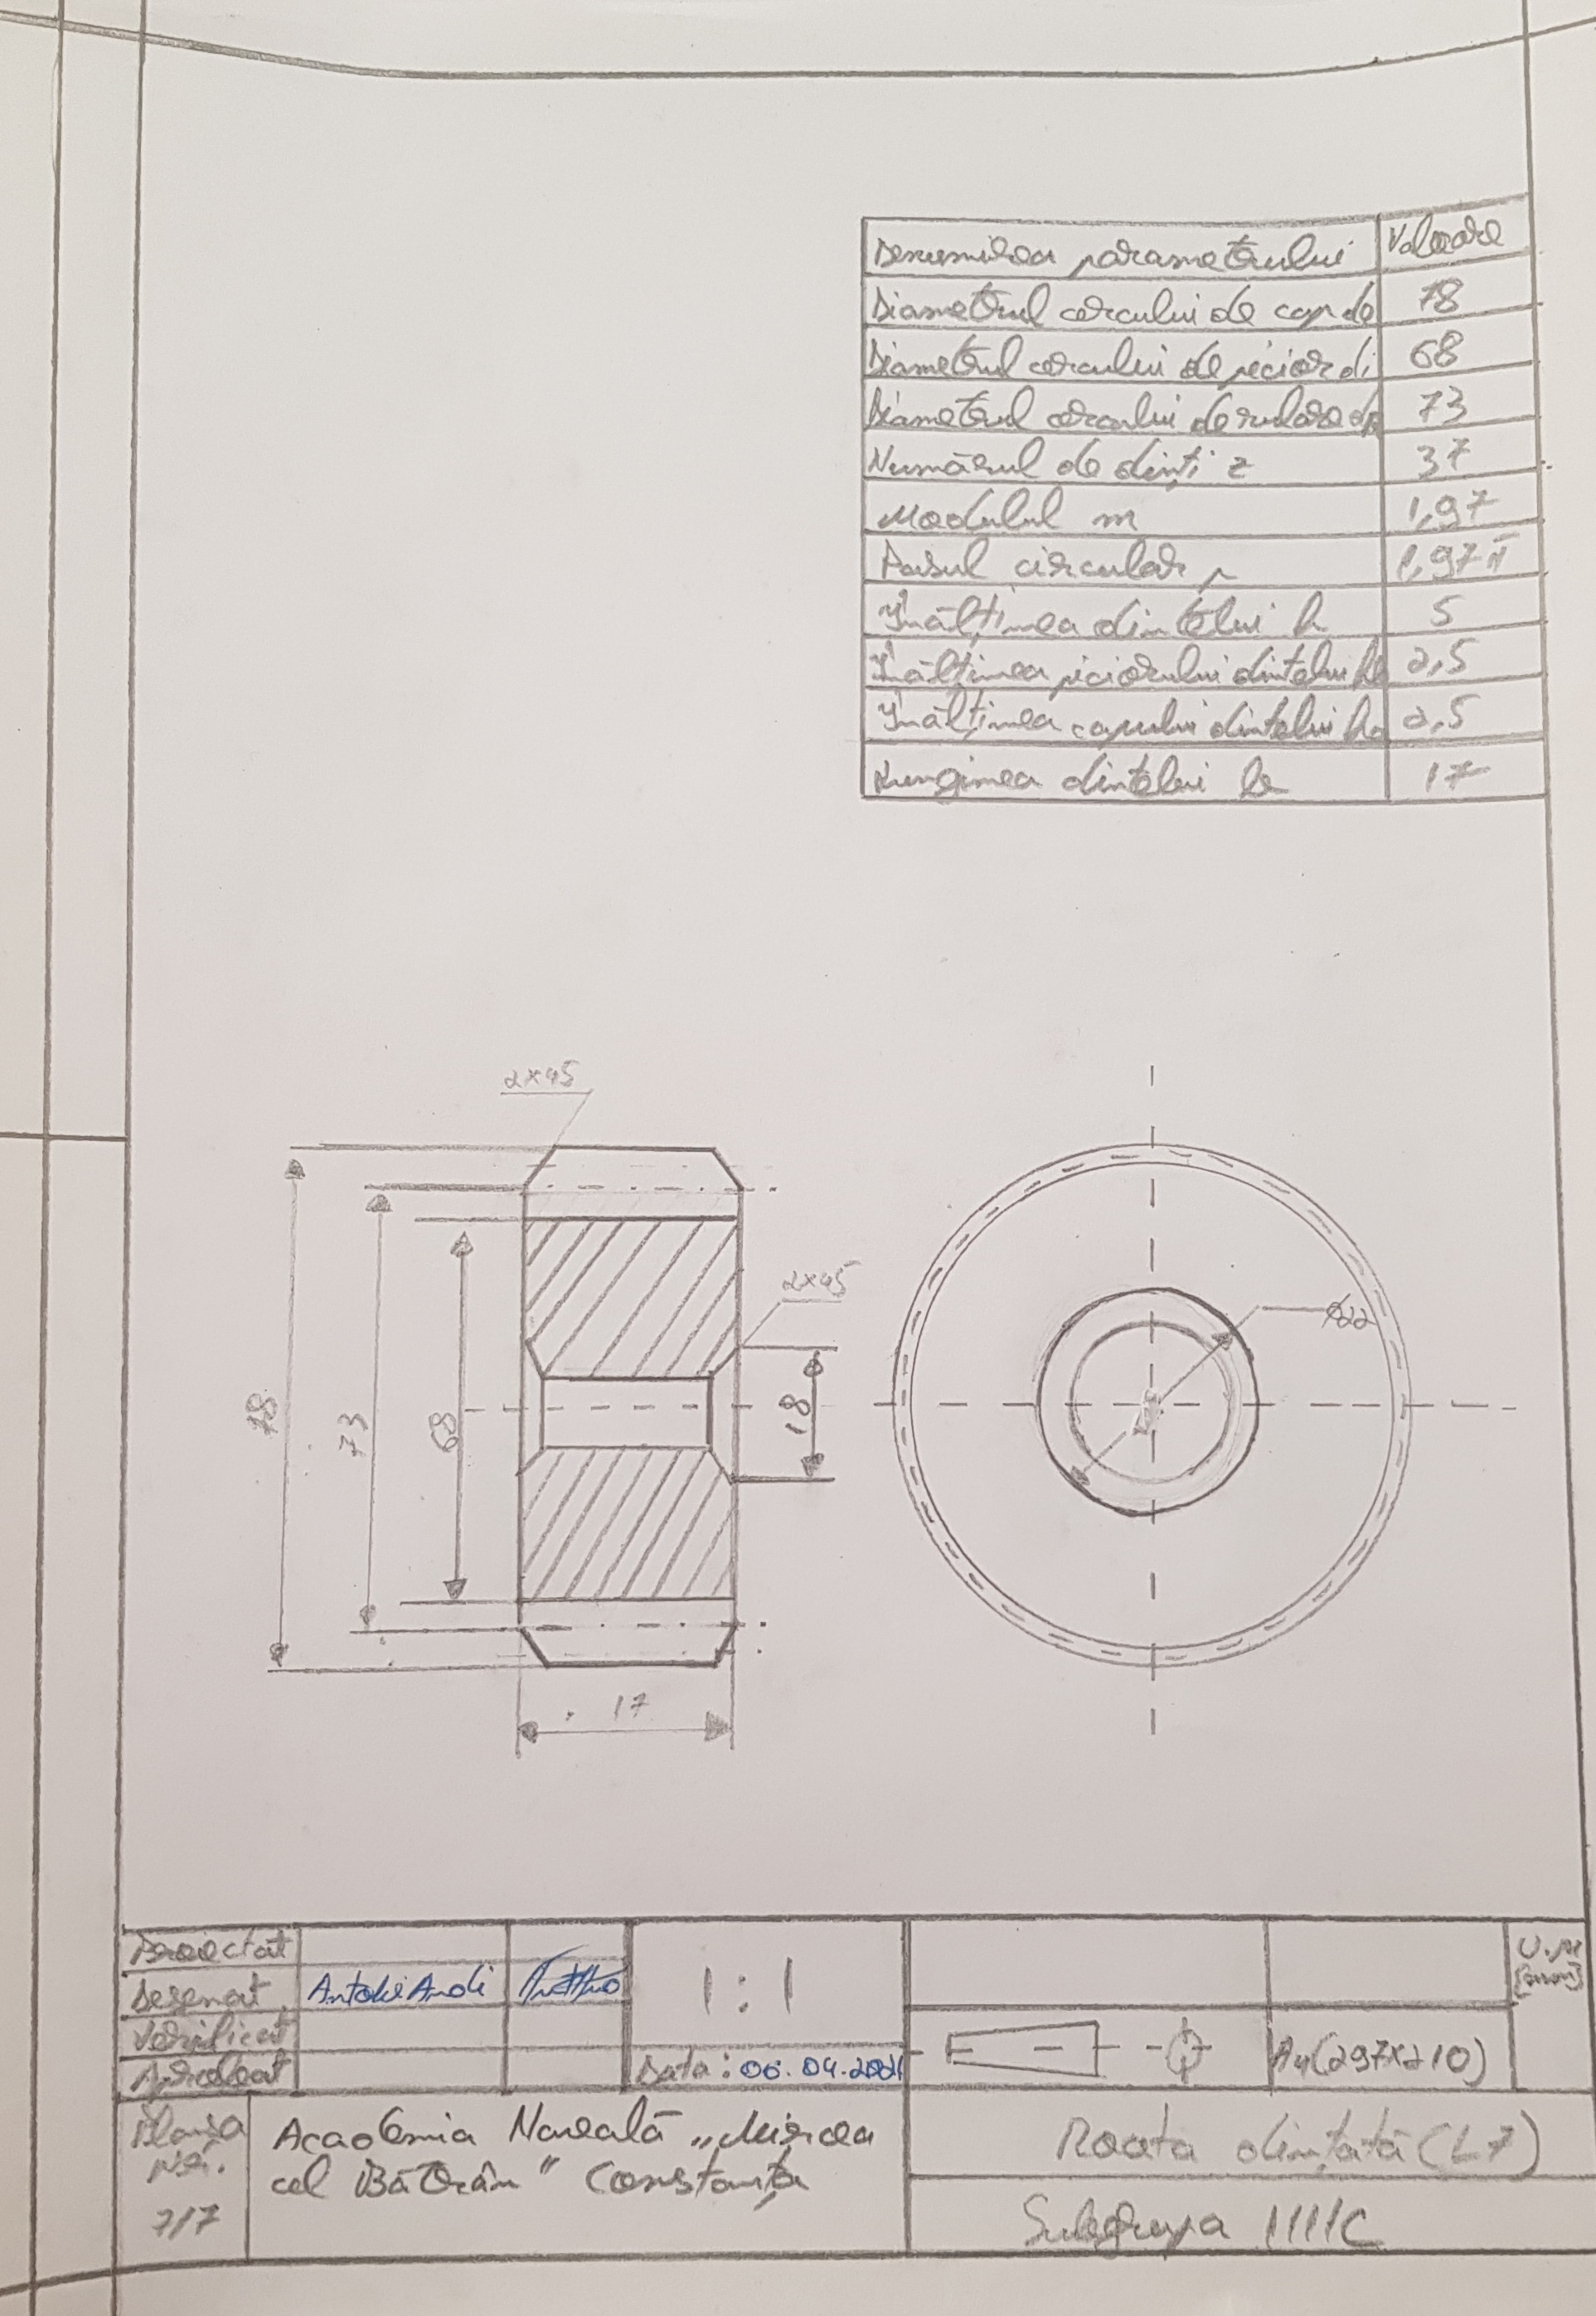 Denumirea parametrului Valoare
Diametrul cercului de cap de 78
Diametrul cercului de picior di 68
Diametrul cercului de rulare dp 73
Numărul de dinți z 37
Modulul m 1,97
Pasul circular p 1,97π
Înălțimea dintelui h 5
Înălțimea piciorului dintelui 2,5
Înălțimea capului dintelui 2,5
Lungimea dintelui b 17
2x45
2x45
Ø22
78
73
68
18
17
Proiectat
Desenat Antohi Andi
Verificat
Aprobat
1:1
Data: 06.04.2021
U.M
[mm]
A4(297x210)
Planșa
Nr.
7/7
Academia Navală „Mircea
cel Bătrân" Constanța
Roata dințată (L7)
Subgrupa 1111C